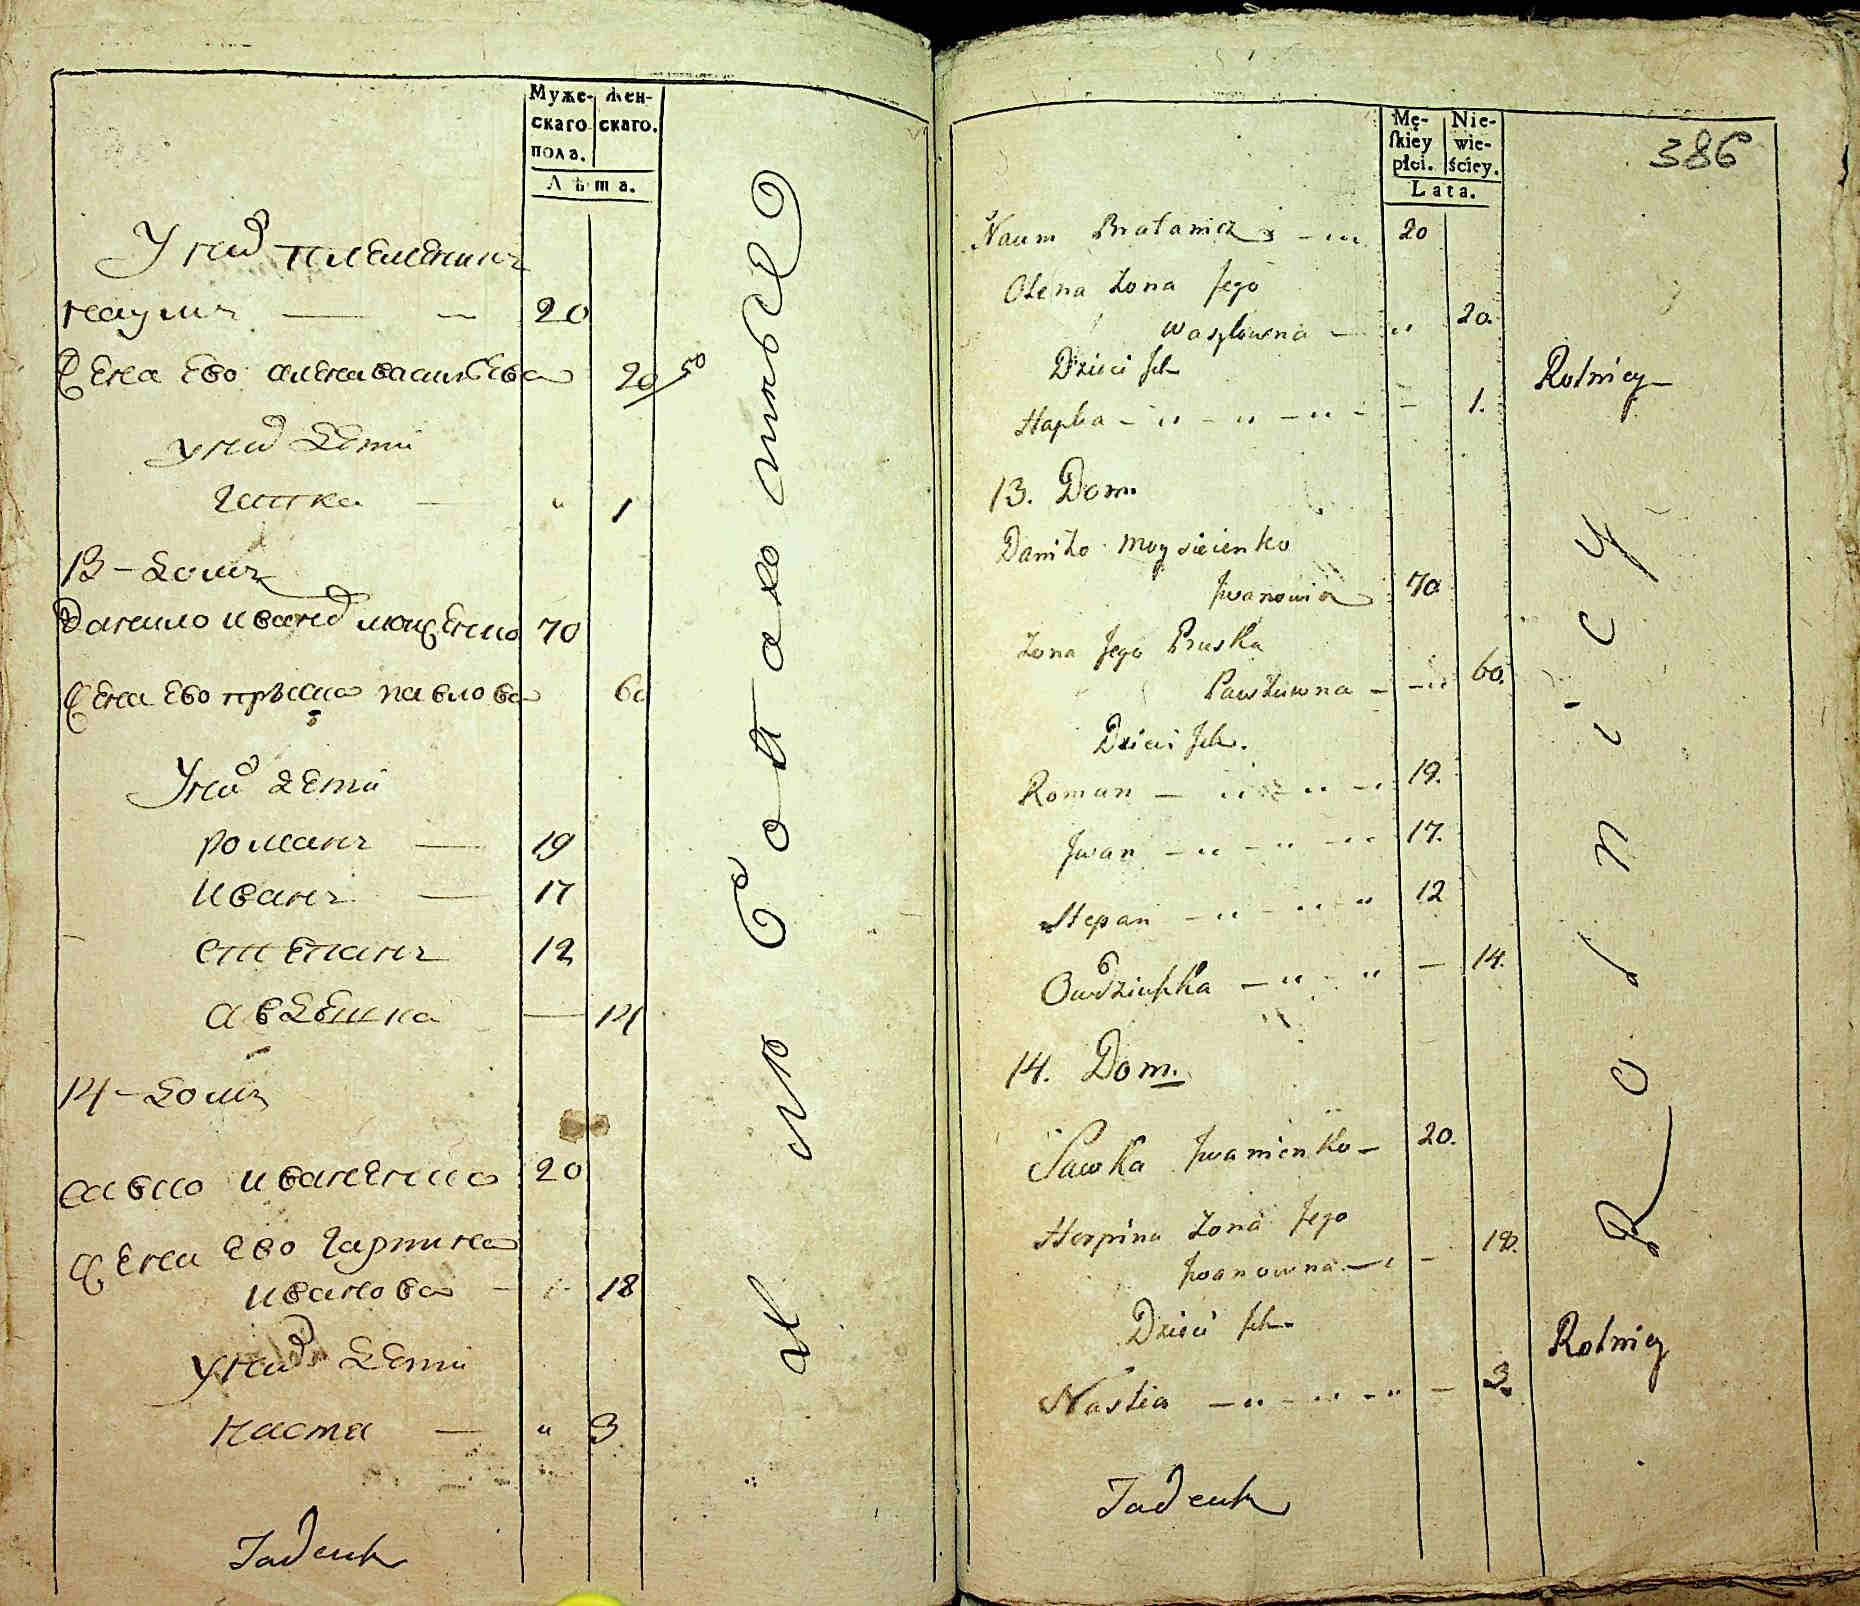 Муже-
скаго
пола.
Жен-
скаго.
Лѣта.
У них племенникъ
наумъ — — 20
жена Ево алена васильева 20
У них дети
гапка — " 1
13 – домъ
данило иванов 70
жена Ево прѣска павлова 60
У них дети
романъ — 19
иванъ — 17
степанъ 12
авдешка — 14
14 – домъ
савко иваненко 20
жена Ево гарпина
иванова – 18
У них дети
настя — " 3
Mę-
skiey
płci.
Nie-
wie-
ściey.
Lata.
386
Naum Bratanicz 20
Olena żona Jego
Wasylowna — " 20.
Dzieci Ich
Hapka — 1.
Rolnicy
13. Dom.
Daniło Moysieienko
Iwanowicz 70
Żona Jego Pruska
Pawłowna — 60.
Dzieci Ich.
Roman — 19.
Iwan — 17.
Stepan — 12
Owdziuszka — 14.
14. Dom.
Sawka Iwanienko — 20.
Horpina żona Jego
Iwanowna — 18.
Dzieci Ich
Rolnicy
Nastia — 3.
Rolnicy